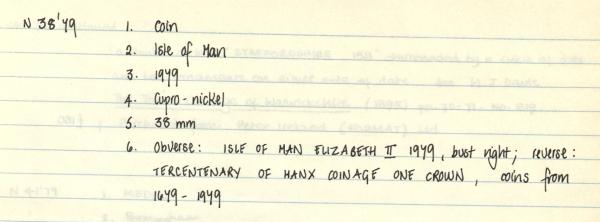 N 38'79 1. Coin
2. Isle of Man
3. 1979
4. Cupro-nickel
5. 38 mm
6. Obverse: ISLE OF MAN ELIZABETH II 1979, bust right; reverse:
TERCENTENARY OF MANX COINAGE ONE CROWN, coins from
1679 - 1979